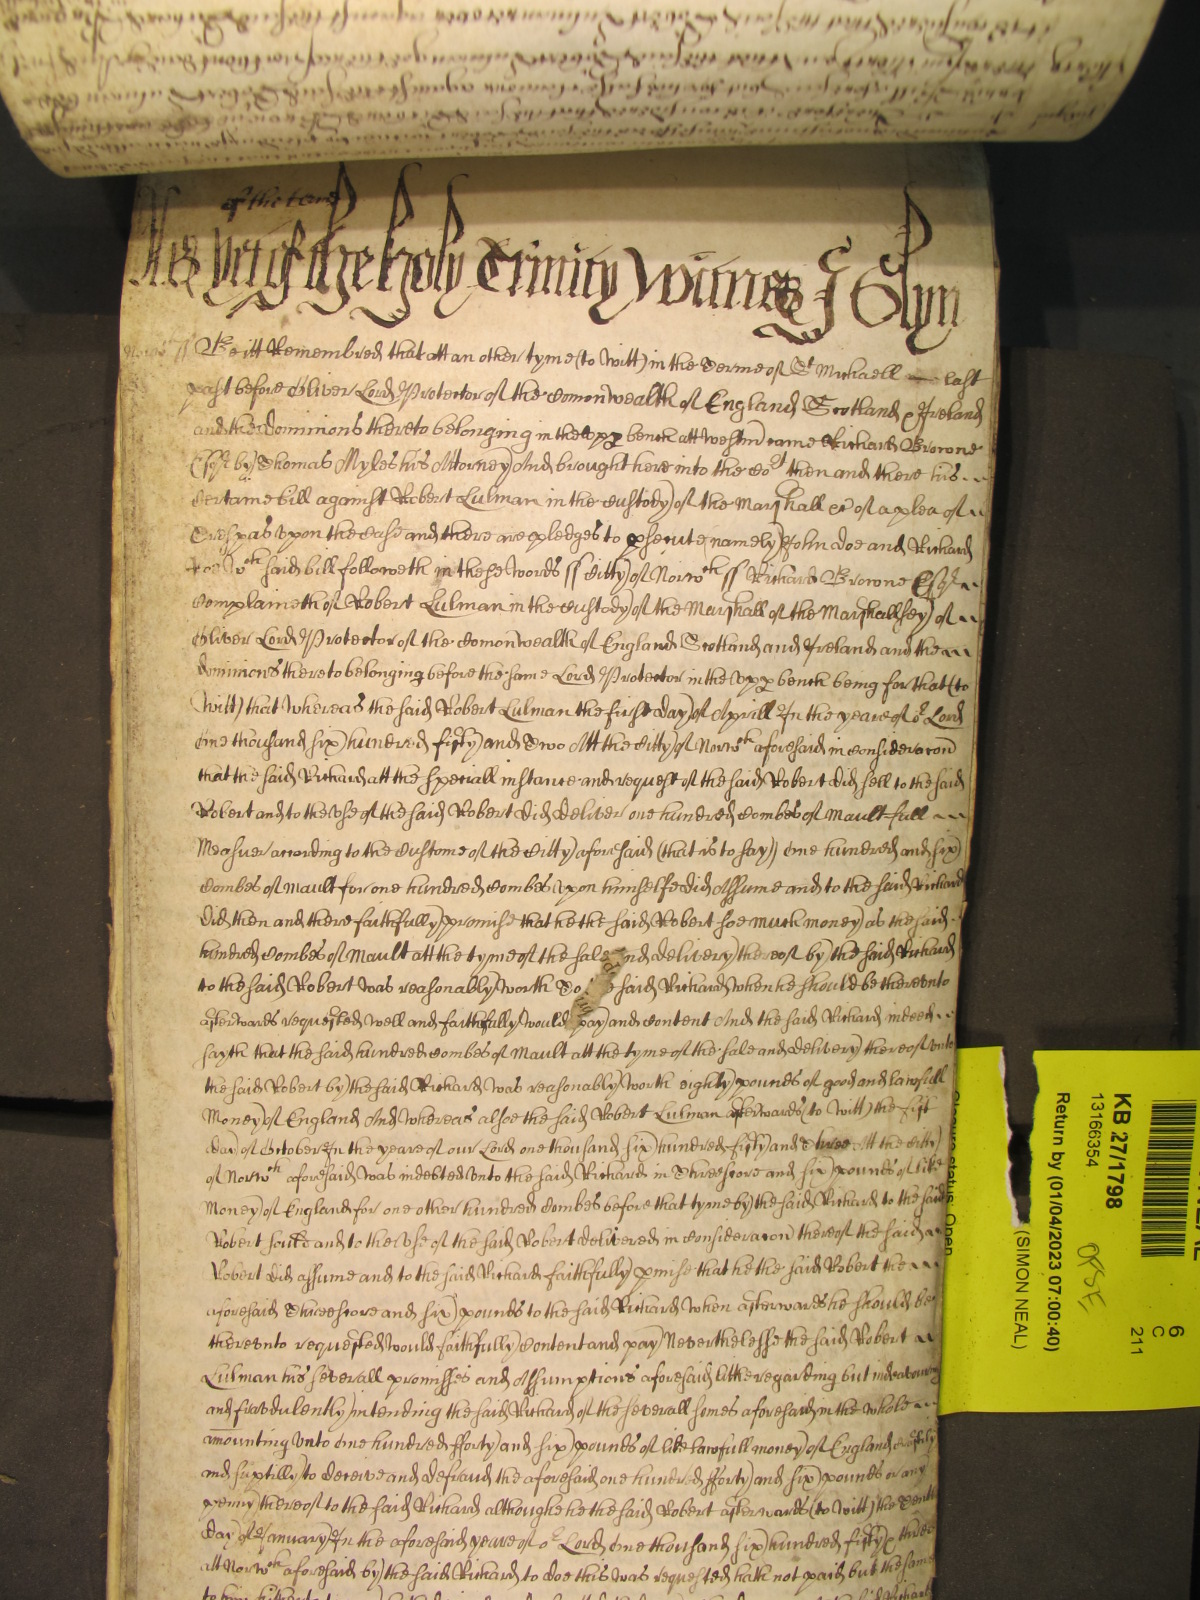 of the term
Yet of the holy Trinity Witnes J Glyn
Norwch ss Be itt Remembred that att an other tyme (to witt) in the Terme of St Michaell last
past before Oliver Lord Protector of the Comonwealth of England Scotland & Ireland
and the dominions thereto belonging in the upp bench att Westm came Richard Browne
Esqr by Thomas Myles his Attorney And brought here into the Cot then and there his
Certaine bill against Robert Lulman in the Custody of the Marshall &c of a plea of
Trespas upon the Case and there are pledges to psecute namely John doe and Richard
roe Wch said bill followeth in these words ss Citty of Norwch ss Richard Browne Esqr
Complaineth of Robert Lulman in the Custody of the Marshall of the Marshallsey of
Oliver Lord Protector of the Comonwealth of England Scotland and Ireland and the
dominions thereto belonging before the same Lord Protector in the Upp bench being for that (to
Witt) that Whereas the said Robert Lulman the first day of Aprill In the yeare of or Lord
One thousand six hundred fifty and Two Att the Citty of Norwch aforesaid in Consideracon
that the said Richard att the speciall instance and request of the said Robert did sell to the said
Robert and to the Use of the said Robert did deliver one hundred Combes of Mault full
Measuer according to the Custome of the Citty aforesaid (that is to say) One hundred and six
Combes of Mault for one hundred Combes Upon himselfe did Assume and to the said Richard
did then and there faithfully promise that he the said Robert soe much money as the said
hundred Combes of Mault att the tyme of the sale and delivery thereof by the said Richard
to the said Robert was reasonably worth To said Richard when he should be thereunto
afterwards requested well and faithfully would pay and Content And the said Richard indeed
sayth that the said hundred Combes of Mault att the tyme of the sale and delivery thereof unto
the said Robert by the said Richard was reasonably worth eighty pounds of good and lawfull
Money of England And whereas alsoe the said Robert Lulman afterwards (to witt) the first
day of October In the yeare of our Lord one thousand six hundred fifty and three Att the Citty
of Norwch aforesaid was indebted unto the said Richard in Threescore and six pounds of like
Money of England for one other hundred Combes before that tyme by the said Richard to the said
Robert sould and to the Use of the said Robert delivered in Consideracon thereof the said
Robert did assume and to the said Richard faithfully pmise that he the said Robert the
aforesaid Threescore and six pounds to the said Richard when afterwards he should be
thereunto requested would faithfully Content and pay Neverthelesse the said Robert
Lulman his severall promisses and Assumptions aforesaid little regarding but indeavouring
and fraudulently intending the said Richard of the severall somes aforesaid in the whole
amounting unto One hundred fforty and six pounds of like lawfull money of England craftily
and suptilly to deceive and defraud the aforesaid one hundred fforty and six pounds or any
penny thereof to the said Richard althoughe he the said Robert afterwards (to witt) the Tenth
day of January In the aforesaid yeare of or Lord One thousand six hundred fifty & three
att Norwch aforesaid by the said Richard to doe this was requested hath not paid but the same
KB 27/1798
13166354
Return by (01/04/2023 07:00:40)
(SIMON NEAL)
Closure status: Open
6
C
211